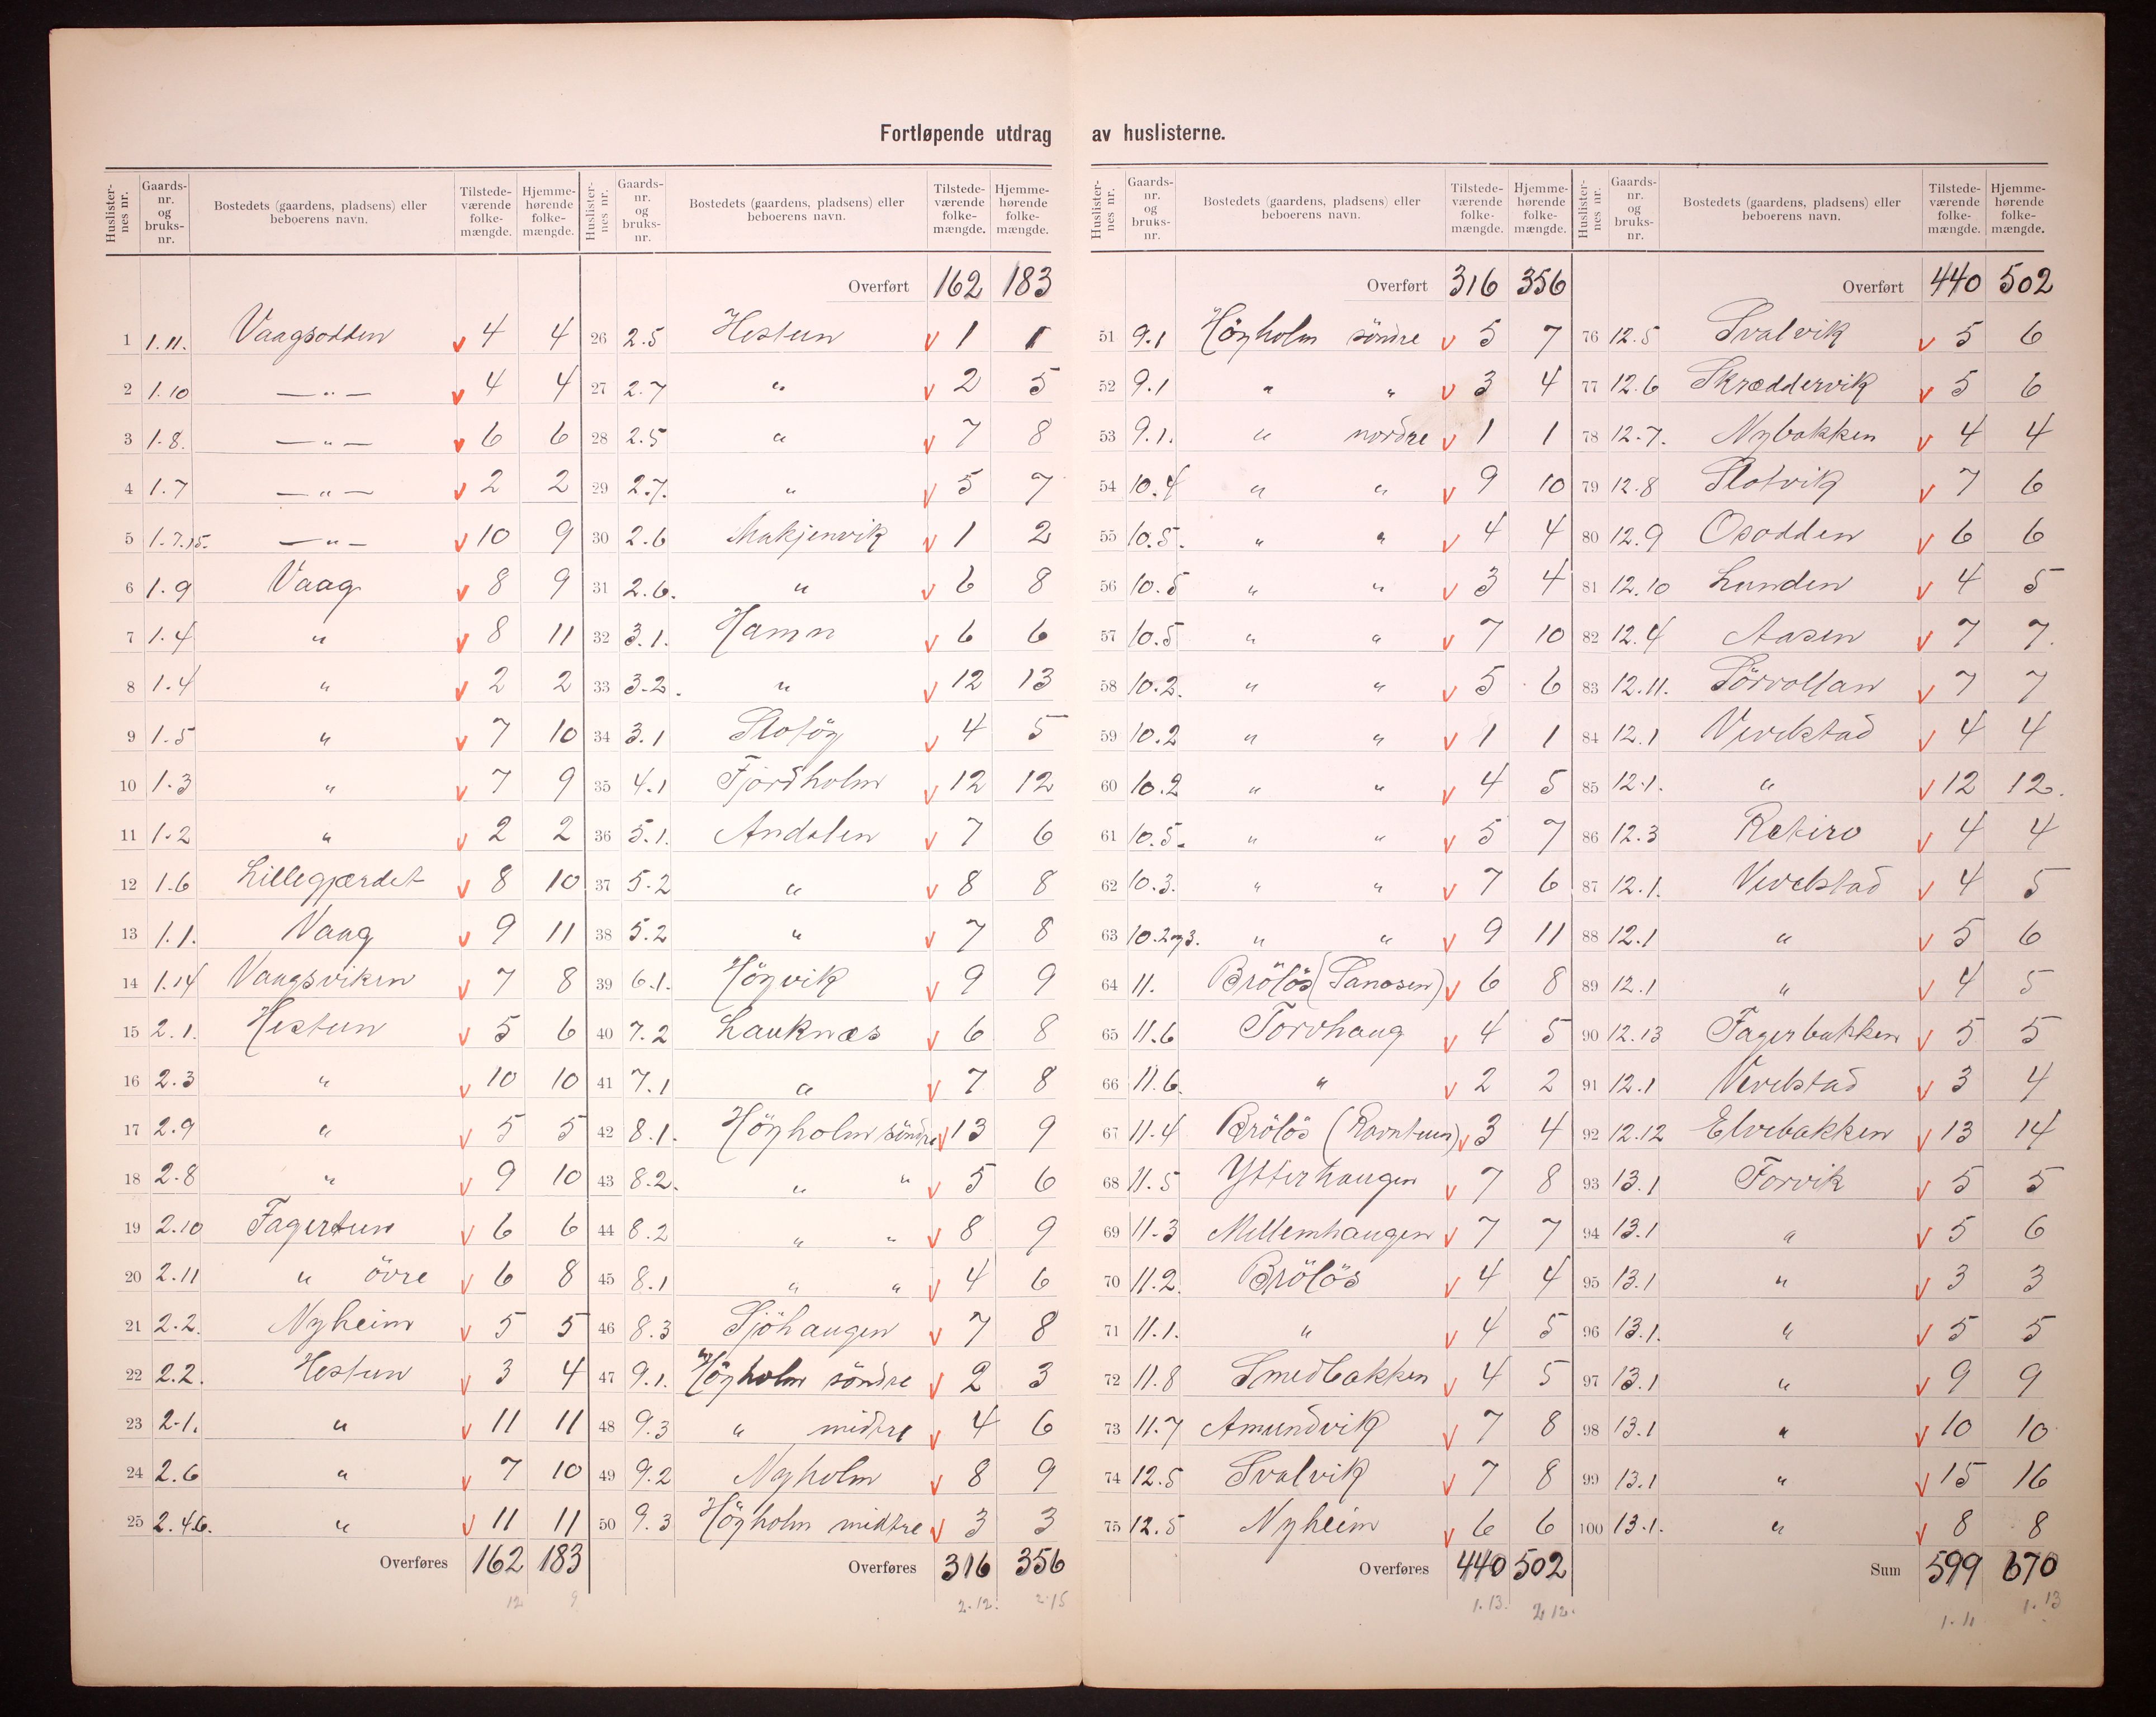 Fortløpende utdrag av huslisterne.
Huslisternes nr. Gaards-nr. og bruks-nr. Bostedets (gaardens, pladsens) eller beboerens navn. Tilstedeværende folkemængde. Hjemmehørende folkemængde.
1 1.11. Vaagsodden v 4 4
2 1.10 — " — v 4 4
3 1.8. — " — v 6 6
4 1.7 — " — v 2 2
5 1.7.15. — " — v 10 9
6 1.9 Vaag v 8 9
7 1.4 " v 8 11
8 1.4 " v 2 2
9 1.5 " v 7 10
10 1.3 " v 7 9
11 1.2 " v 2 2
12 1.6 Lillegjærdet v 8 10
13 1.1. Vaag v 9 11
14 1.14 Vaagsviken v 7 8
15 2.1. Hestun v 5 6
16 2.3 " v 10 10
17 2.9 " v 5 5
18 2.8 " v 9 10
19 2.10 Fagertun v 6 6
20 2.11 " övre v 6 8
21 2.2. Nyheim v 5 5
22 2.2. Hestun v 3 4
23 2.1. " v 11 11
24 2.6 " v 7 10
25 2.4.6. " v 11 11
Overføres 162 183
12 9
Huslisternes nr. Gaards-nr. og bruks-nr. Bostedets (gaardens, pladsens) eller beboerens navn. Tilstedeværende folkemængde. Hjemmehørende folkemængde.
Overført 162 183
26 2.5 Hestun v 1 1
27 2.7 " v 2 5
28 2.5 " v 7 8
29 2.7. " v 5 7
30 2.6 v 1 2
31 2.6. " v 6 8
32 3.1. Hamn v 6 6
33 3.2. " v 12 13
34 3.1 Slotöy v 4 5
35 4.1 Fjordholm v 12 12
36 5.1. Andalen v 7 6
37 5.2 " v 8 8
38 5.2 " v 7 8
39 6.1. Höyvik v 9 9
40 7.2 Lauknæs v 6 8
41 7.1 " v 7 8
42 8.1. Höyholm söndre v 13 9
43 8.2. " " v 5 6
44 8.2 " " v 8 9
45 8.1 " " v 4 6
46 8.3 Sjöhaugen v 7 8
47 9.1. Höyholm söndre v 2 3
48 9.3 " midtre v 4 6
49 9.2 Nyholm v 8 9
50 9.3 Höyholm midtre v 3 3
Overføres 316 356
2.12. 2.15
Huslisternes nr. Gaards-nr. og bruks-nr. Bostedets (gaardens, pladsens) eller beboerens navn. Tilstedeværende folkemængde. Hjemmehørende folkemængde.
Overført 316 356
51 9.1 Höyholm söndre v 5 7
52 9.1 " " v 3 4
53 9.1. " nordre v 1 1
54 10.4 " " v 9 10
55 10.5. " " v 4 4
56 10.5 " " v 3 4
57 10.5 " " v 7 10
58 10.2. " " v 5 6
59 10.2 " " v 1 1
60 10.2 " " v 4 5
61 10.5. " " v 5 7
62 10.3. " " v 7 6
63 10.2og3. " " v 9 11
64 11. Brölös (Sanosen) v 6 8
65 11.6 Torvhaug v 4 5
66 11.6. " v 2 2
67 11.4 Brölös (Ravntun) v 3 4
68 11.5 Ytterhaugen v 7 8
69 11.3 Mellemhaugen v 7 7
70 11.2. Brölös v 4 4
71 11.1. " v 4 5
72 11.8 Smedbakken v 4 5
73 11.7 Amundvik v 7 8
74 12.5 Svalvik v 7 8
75 12.5 Nyheim v 6 6
Overføres 440 502
1.13. 2.12.
Huslisternes nr. Gaards-nr. og bruks-nr. Bostedets (gaardens, pladsens) eller beboerens navn. Tilstedeværende folkemængde. Hjemmehørende folkemængde.
Overført 440 502
76 12.5 Svalvik v 5 6
77 12.6 Skræddervik v 5 6
78 12.7. Nybakken v 4 4
79 12.8 Slotvik v 7 6
80 12.9 Osodden v 6 6
81 12.10 Lunden v 4 5
82 12.4 Aasen v 7 7.
83 12.11. Sörvollan v 7 7
84 12.1 Vevelstad v 4 4
85 12.1. " v 12 12.
86 12.3 Retiro v 4 4
87 12.1. Vevelstad v 4 5
88 12.1 " v 5 6
89 12.1 " v 4 5
90 12.13 Fagerbakken v 5 5
91 12.1 Vevelstad v 3 4
92 12.12 Elvebakken v 13 14
93 13.1 Forvik v 5 5
94 13.1 " v 5 6
95 13.1 " v 3 3
96 13.1. " v 5 5
97 13.1 " v 9 9
98 13.1 " v 10 10
99 13.1 " v 15 16
100 13.1. " v 8 8
Sum 599 670
1.11 1.13